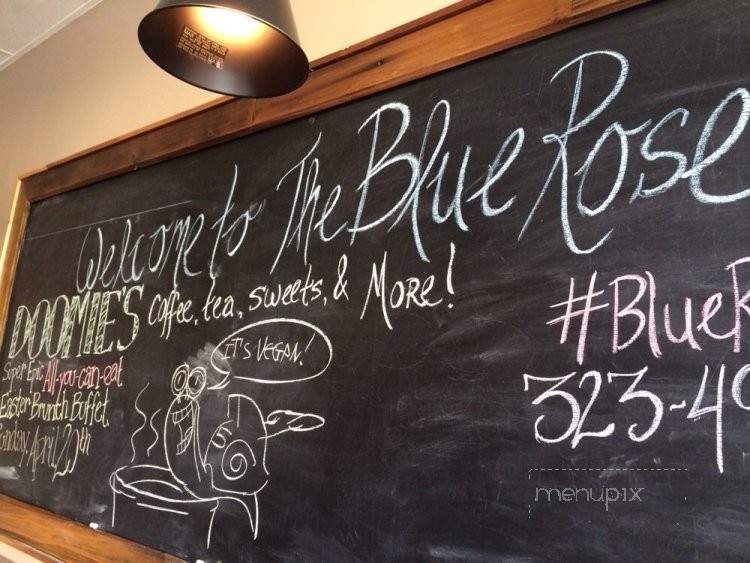 Welcome to The Blue Rose
Coffee, tea, sweets, & More!
DOOMIE'S
Super Epic All-you-can-eat
Easter Brunch Buffet
Sunday, April 20th
IT'S VEGAN!
#BlueR
323-49
menupix